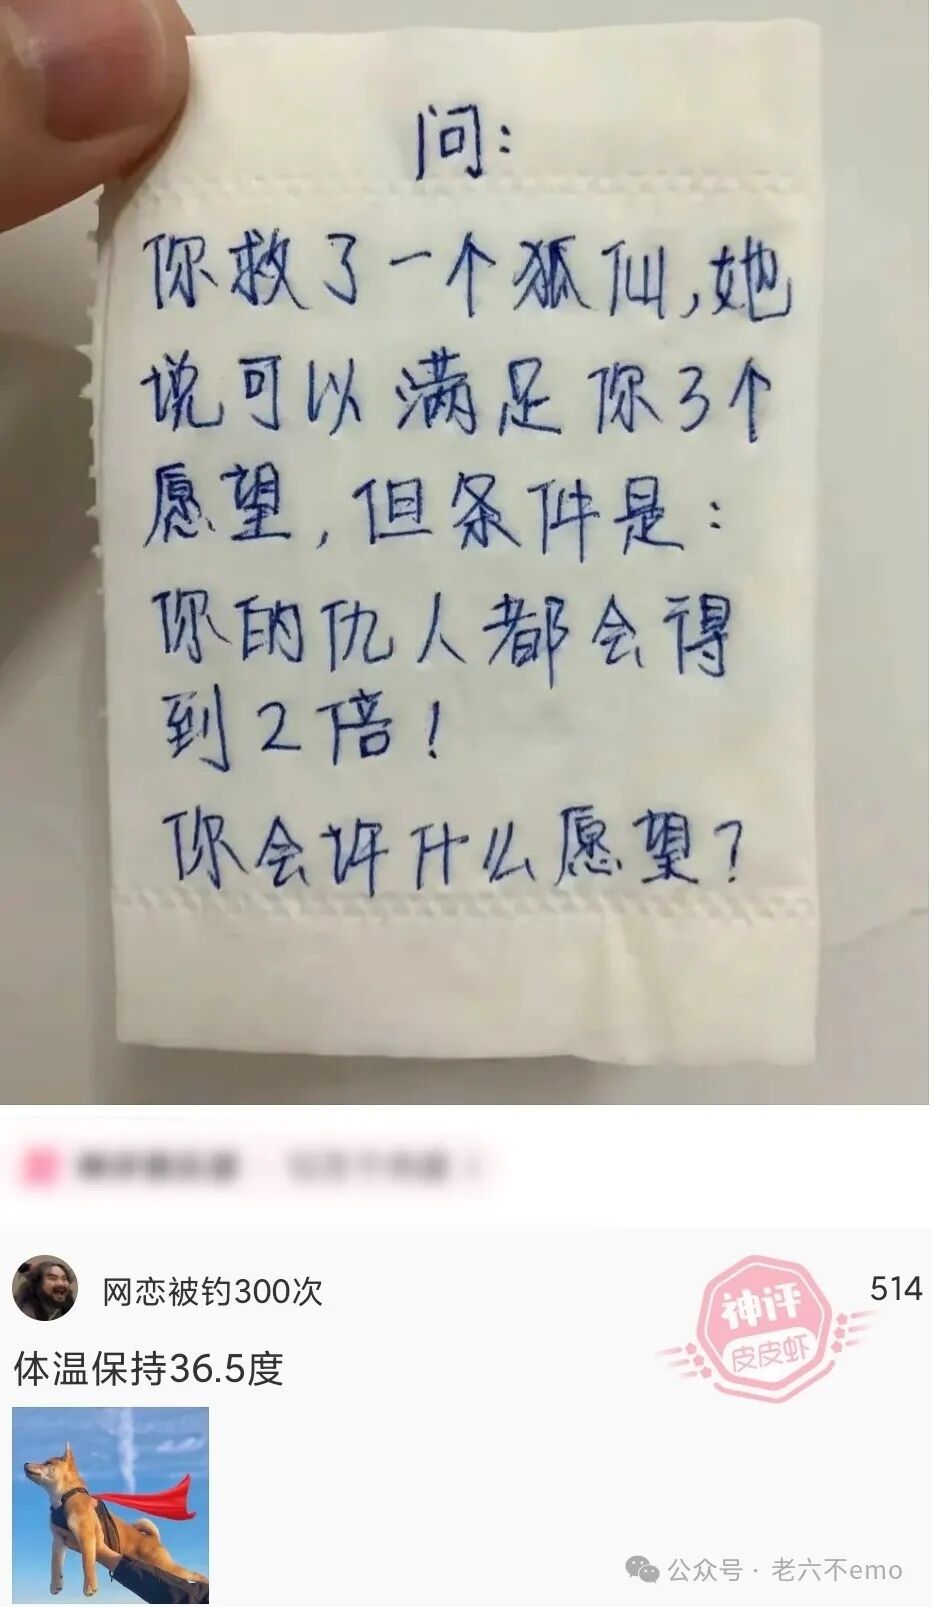 问:
你救了一个狐仙,她
说可以满足你3个
愿望,但条件是:
你的仇人都会得
到2倍!
你会许什么愿望?
网恋被钓300次
514
体温保持36.5度
神评
皮皮虾
公众号·老六不emo